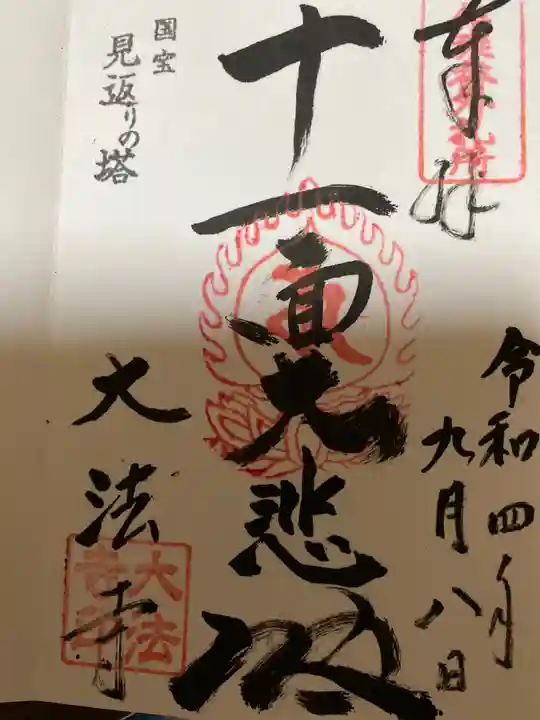 奉拝
令和四年
九月八日
十一面大悲殿
大法寺
国宝
見返りの塔
大法
寺印